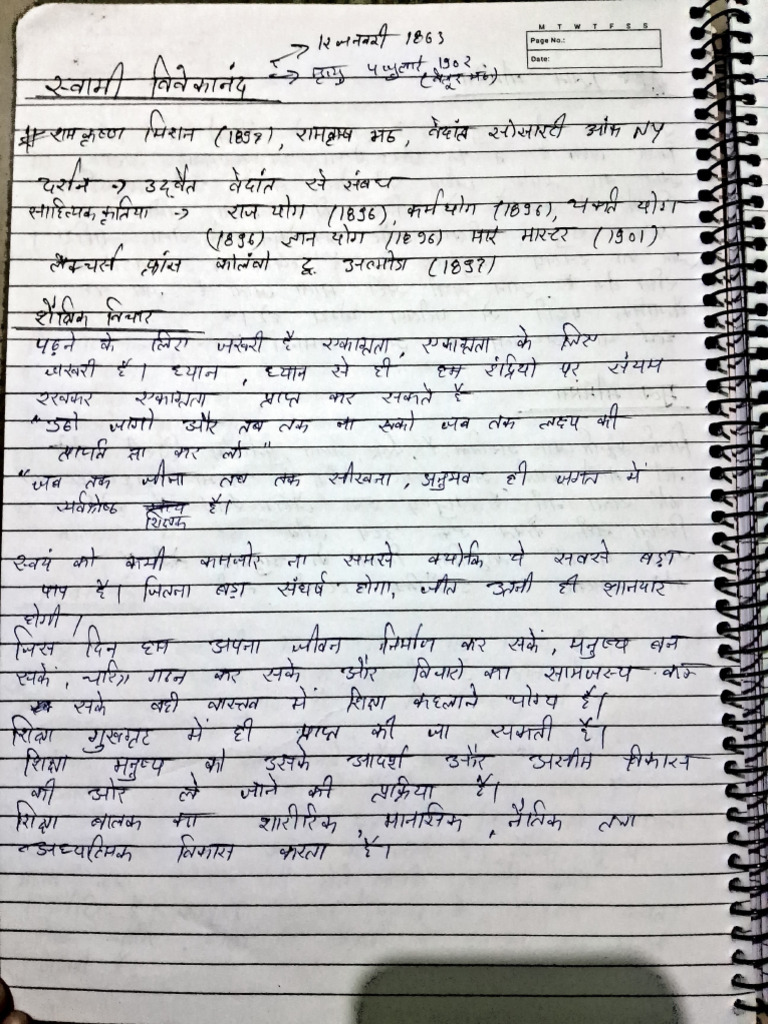 M T W T F S S
Page No.:
Date:
→ 12 जनवरी 1863
स्वामी विवेकानंद → मृत्यु 4 जुलाई 1902
(बेलूर मठ)
# रामकृष्ण मिशन (1897), रामकृष्ण मठ, वेदांत सोसायटी ऑफ NY
दर्शन → अद्वैत वेदांत से संबंध
साहित्यिक कृतिया → राज योग (1896), कर्म योग (1896), भक्ती योग
(1896) ज्ञान योग (1896) माई मास्टर (1901)
लेक्चर्स फ्रांस कोलंबो टू अल्मोडा (1897)
शैक्षिक विचार
पढ़ने के लिए जरूरी है एकाग्रता, एकाग्रता के लिए
जरूरी है। ध्यान, ध्यान से ही हम इंद्रियो पर संयम
रखकर एकाग्रता प्राप्त कर सकते है
"उठो जागो और तब तक ना रूको जब तक लक्ष्य की
प्राप्ति ना कर लो"
"जब तक जीना तब तक सीखना, अनुभव ही जगत में
सर्वश्रेष्ठ शिक्षक है।
स्वयं को कभी कमजोर ना समझे क्योकि ये सबसे बड़ा
पाप है। जितना बड़ा संघर्ष होगा, जीत उतनी ही शानदार
होगी।
जिस दिन हम अपना जीवन निर्माण कर सकें, मनुष्य बन
सकें, चरित्र गठन कर सके और विचारो का सामजस्य कर
सके वही वास्तव में शिक्षा कहलाने योग्य है।
शिक्षा गुरुगृह में ही प्राप्त की जा सकती है।
शिक्षा मनुष्य को उसके आदर्श और असीम विकास
की ओर ले जाने की प्रक्रिया है।
शिक्षा बालक का शारीरिक, मानसिक, नैतिक तथा
अध्यात्मिक विकास करता है।